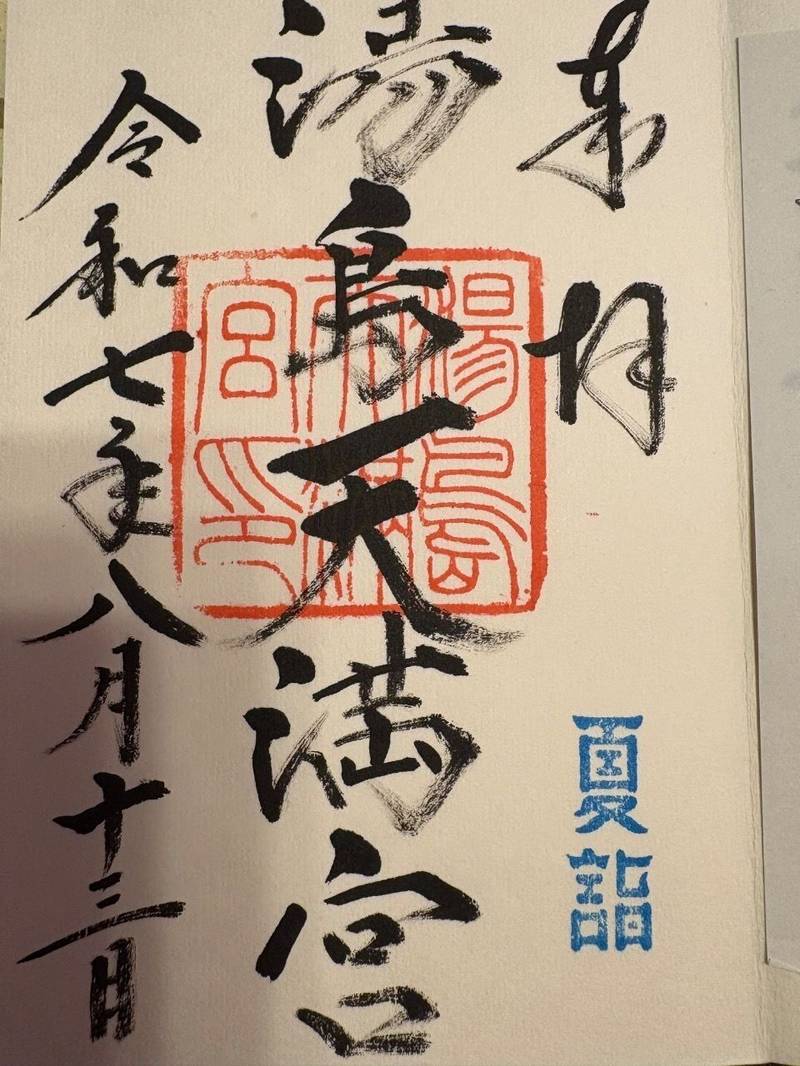 奉拝
夏詣
湯島天満宮
湯島
天満
宮印
令和七年八月十三日